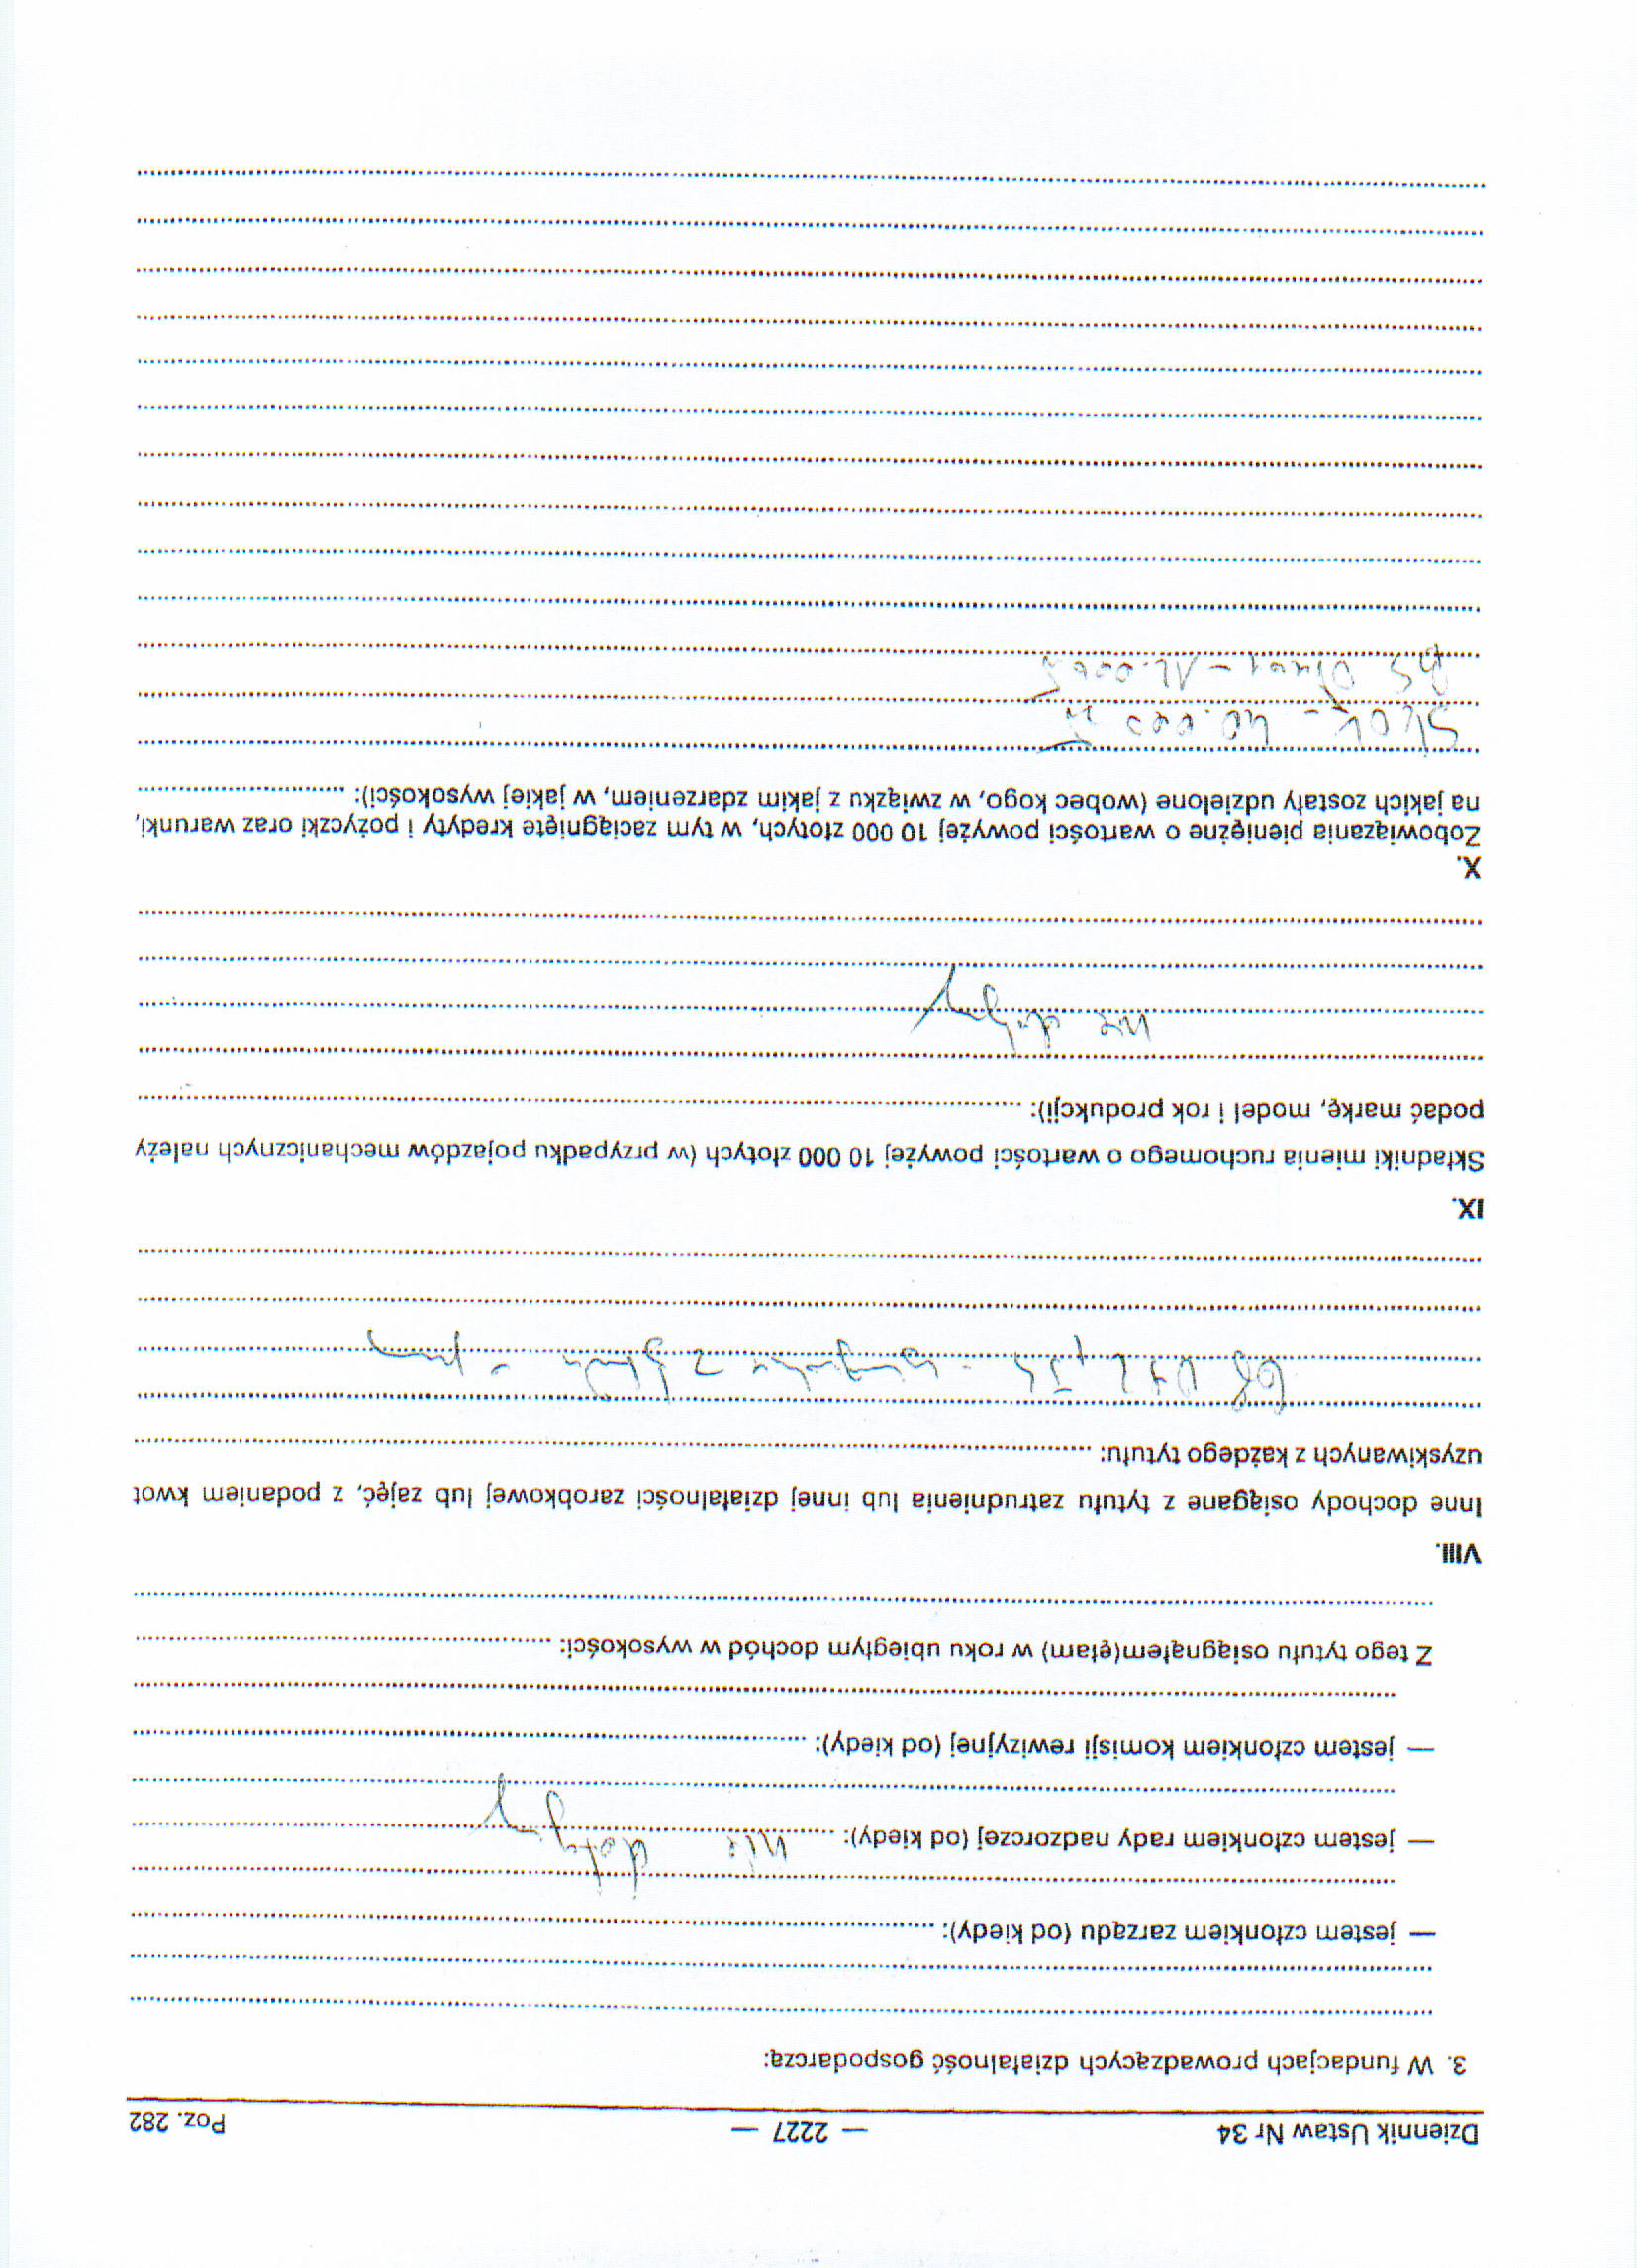 Dziennik Ustaw Nr 34 — 2227 — Poz. 282
3. W fundacjach prowadzących działalność gospodarczą:
— jestem członkiem zarządu (od kiedy):
— jestem członkiem rady nadzorczej (od kiedy): nie dotyczy
— jestem członkiem komisji rewizyjnej (od kiedy):
Z tego tytułu osiągnąłem(ęłam) w roku ubiegłym dochód w wysokości:
VIII.
Inne dochody osiągane z tytułu zatrudnienia lub innej działalności zarobkowej lub zajęć, z podaniem kwot
uzyskiwanych z każdego tytułu:
IX.
Składniki mienia ruchomego o wartości powyżej 10 000 złotych (w przypadku pojazdów mechanicznych należy
podać markę, model i rok produkcji):
nie dotyczy
X.
Zobowiązania pieniężne o wartości powyżej 10 000 złotych, w tym zaciągnięte kredyty i pożyczki oraz warunki,
na jakich zostały udzielone (wobec kogo, w związku z jakim zdarzeniem, w jakiej wysokości):
SKOK - 40.000 zł
BS